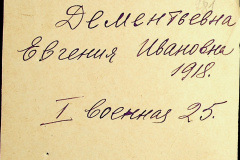 Дементьевна
Евгения Ивановна
1918.
I военная 25.